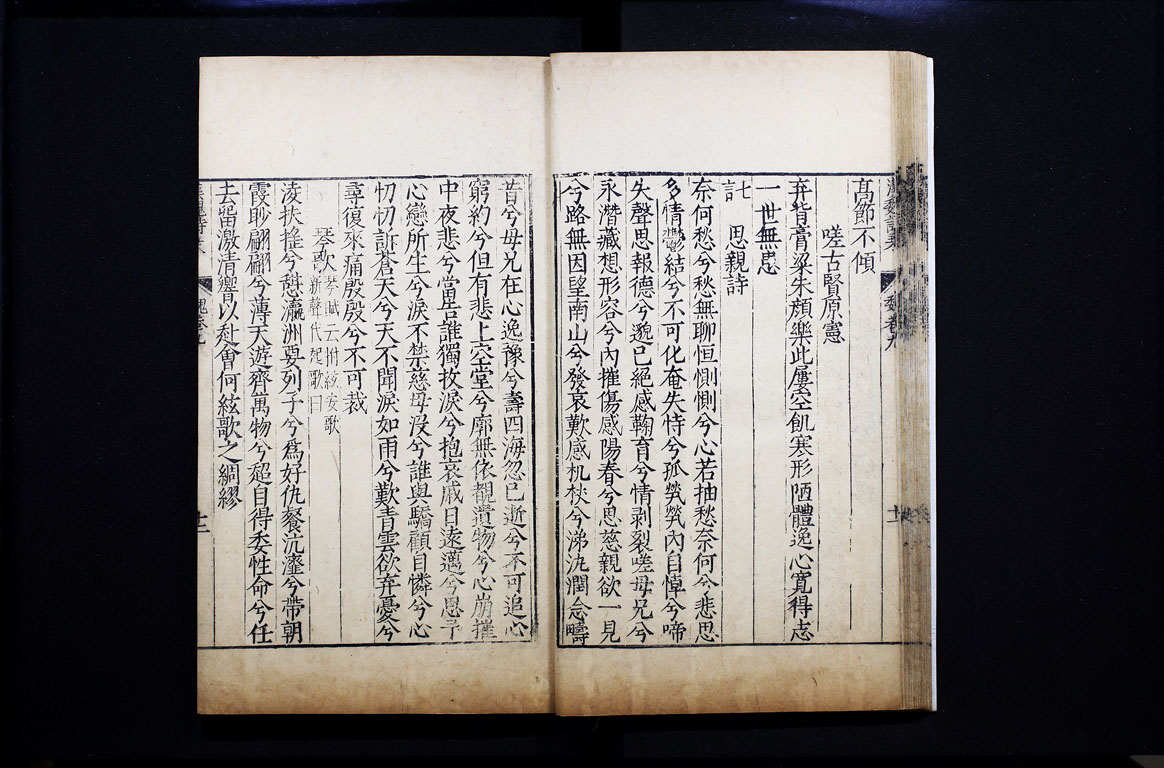 高節不傾
嗟古賢原憲
弃背膏粱朱顏樂此屢空飢寒形陋體逸心寬得志
一世無患
思親詩
奈何愁兮愁無聊恒惻惻兮心若抽愁奈何兮悲思
多情鬱結兮不可化奄失恃兮孤煢煢內自悼兮啼
失聲思報德兮邈已絕感鞠育兮情剥裂嗟母兄兮
永潛藏想形容兮內摧傷感陽春兮思慈親欲一見
兮路無因望南山兮發哀歎感机杖兮涕汍瀾念疇
昔兮母兄在心逸豫兮壽四海忽已逝兮不可追心
窮約兮但有悲上空堂兮廓無依覩遺物兮心崩摧
中夜悲兮當告誰獨抆淚兮抱哀戚日遠邁兮思予
心戀所生兮淚不禁慈母沒兮誰與驕顧自憐兮心
忉忉訴蒼天兮天不聞淚如雨兮歎青雲欲弃憂兮
尋復來痛殷殷兮不可裁
琴歌琴賦云拊絃安歌新聲代起歌曰
淩扶搖兮憩瀛洲要列子兮爲好仇餐沆瀣兮帶朝
霞眇翩翩兮薄天遊齊萬物兮超自得委性命兮任
去留激清響以赴會何絃歌之綢繆
魏卷九
十二